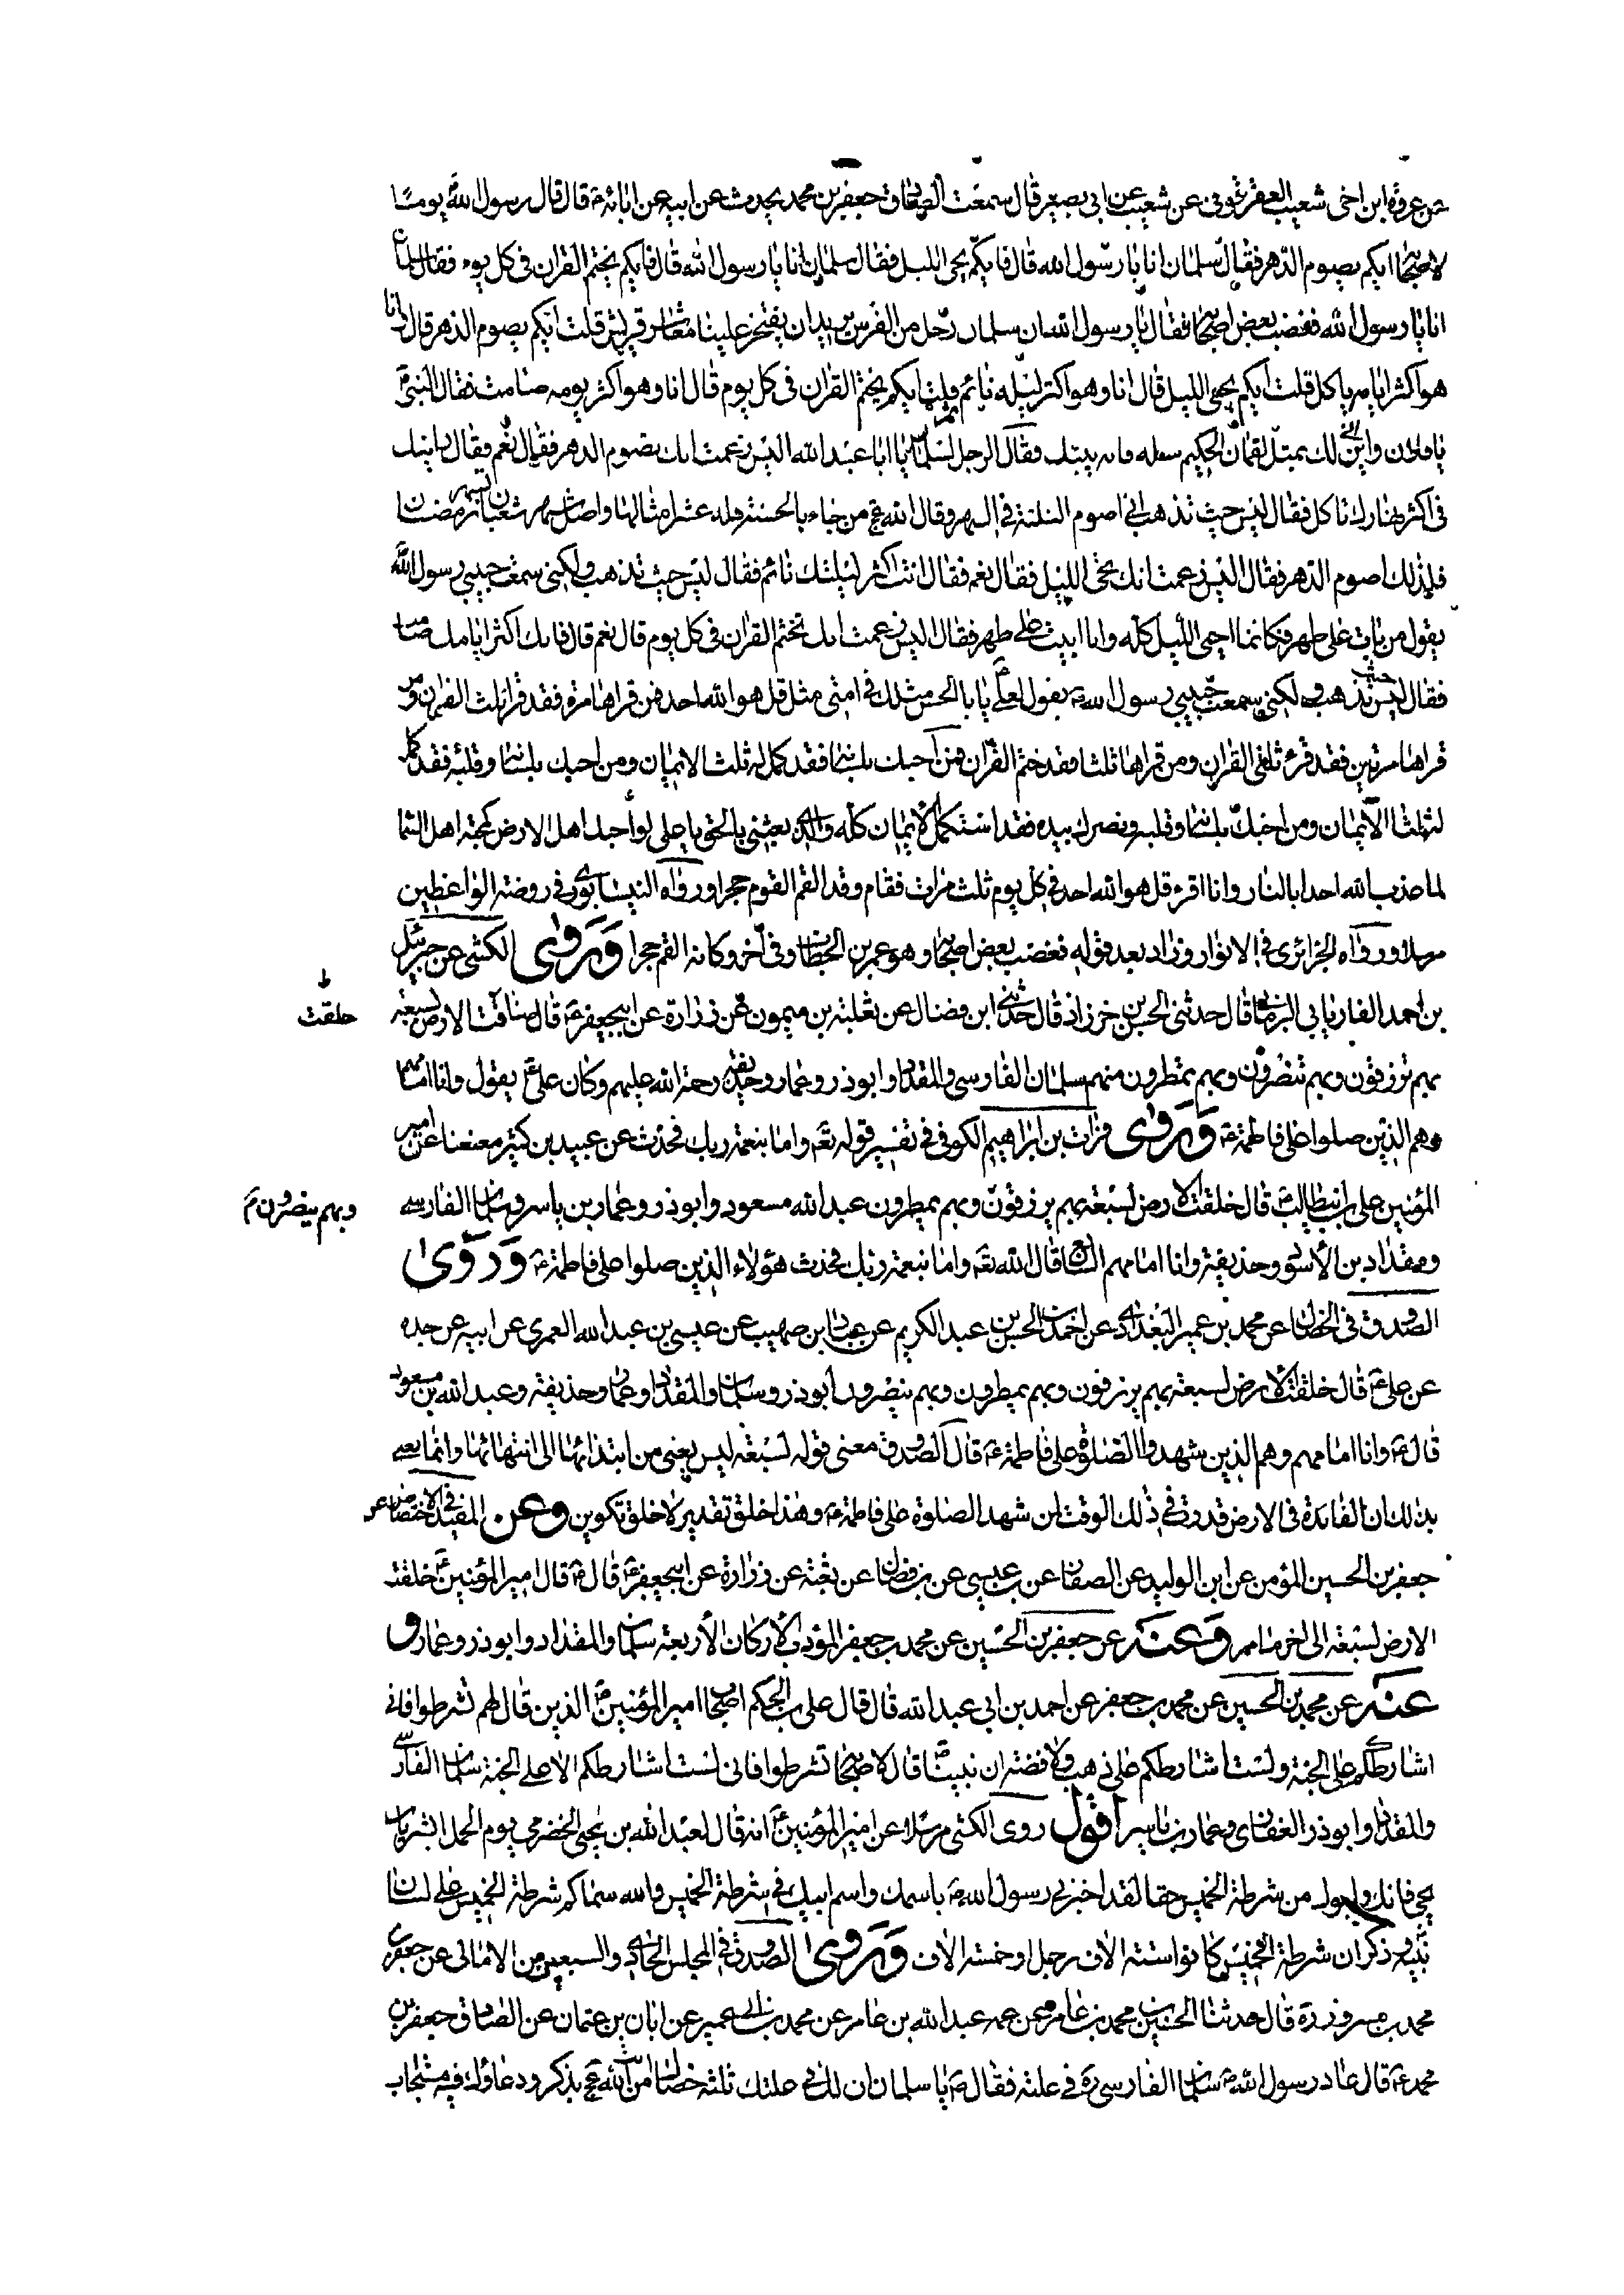 عن عروة ابن اخى شعيب العقرقوفى عن شعيب عن ابى بصير قال سمعت الصادق جعفر بن محمد يحدث عن ابيه عن ابائه ع قال قال رسول الله ص يوما
لاصحابه ايكم يصوم الدهر فقال سلمان انا يا رسول الله قال فايكم يحيى الليل فقال سلمان انا يا رسول الله قال فايكم يختم القران فى كل يوم فقال سلمان
انا يا رسول الله فغضب بعض اصحابه فقال يا رسول الله ان سلمان رجل من الفرس يريد ان يفتخر علينا معاشر قريش قلت ايكم يصوم الدهر قال انا
وهو اكثر ايامه ياكل قلت ايكم يحيى الليل قال انا وهو اكثر ليله نائم قلت ايكم يختم القران فى كل يوم قال انا وهو اكثر يومه صامت فقال النبى ص
يا فلان وانى لك بمثل لقمان الحكيم سله فانه ينبئك فقال الرجل لسلمان يا ابا عبد الله اليس زعمت انك تصوم الدهر فقال نعم فقال رايتك
فى اكثر نهارك تاكل فقال ليس حيث تذهب انى اصوم الثلثة فى الشهر وقال الله عج من جاء بالحسنة فله عشر امثالها واصل شهر شعبان بشهر رمضان
فلذلك اصوم الدهر فقال اليس زعمت انك تحيى الليل فقال نعم فقال انت اكثر ليلتك نائم فقال ليس حيث تذهب ولكنى سمعت حبيبى رسول الله
يقول من بات على طهر فكانما احيى الليل كله وانا ابيت على طهر فقال اليس زعمت انك تختم القران فى كل يوم قال نعم قال فانك اكثر ايامك صامت
فقال ليس حيث تذهب ولكنى سمعت حبيبى رسول الله ص يقول لعلى ع يا ابا الحسن مثلك فى امتى مثل قل هو الله احد فمن قراها مرة فقد قرا ثلث القران ومن
قراها مرتين فقد قرء ثلثى القران ومن قراها ثلثا فقد ختم القران فمن احبك بلسانه فقد كمل له ثلث الايمان ومن احبك بلسانه وقلبه فقد كمل
له ثلثا الايمان ومن احبك بلسانه وقلبه ونصرك بيده فقد استكمل الايمان كله والذى بعثنى بالحق يا على لو احبك اهل الارض كمحبة اهل السماء
لما عذب الله احدا بالنار وانا اقرء قل هو الله احد فى كل يوم ثلث مرات فقام وقد القم القوم حجرا ورواه النيسابورى فى روضة الواعظين
مرسلا ورواه الجزائرى فى الانوار وزاد بعد قوله فغضب بعض اصحابه وهو عمر بن الخطاب وفى اخره وكانه القم حجرا وروى الكشى عن جبرئيل
بن احمد الفاريابى البرنانى قال حدثنى الحسن بن خرزاذ قال حدثنى ابن فضال عن ثعلبة بن ميمون عن زرارة عن ابيجعفر ع قال ضاقت الارض بسبعة
خلقت ط
بهم ترزقون وبهم تنصرون وبهم تمطرون منهم سلمان الفارسى والمقداد وابوذر وعمار وحذيفة رحمة الله عليهم وكان على ع يقول وانا امامهم
وهم الذين صلوا على فاطمة ع وروى فرات بن ابراهيم الكوفى فى تفسير قوله تعه واما بنعمة ربك فحدث عن عبيد بن كثير معنعنا عن امير
المؤمنين على بن ابيطالب ع قال خلقت الارض لسبعة بهم يرزقون وبهم يمطرون عبد الله مسعود وابوذر وعمار بن ياسر وسلمان الفارسى
وبهم ينصرون م
ومقداد بن الاسود وحذيفة وانا امامهم السابع قال الله تعه واما بنعمة ربك فحدث هؤلاء الذين صلوا على فاطمة ع وروى
الصدوق فى الخصال عن محمد بن عمير البغدادى عن احمد بن الحسن بن عبد الكريم عن عباد ابن صهيب عن عيسى بن عبد الله العمرى عن ابيه عن جده
عن على ع قال خلقت الارض لسبعة بهم يرزقون وبهم يمطرون وبهم ينصرون ابوذر وسلمان والمقداد وعمار وحذيفة وعبد الله بن مسعود
قال ع وانا امامهم وهم الذين شهدوا الصلوة على فاطمة ع قال الصدوق معنى قوله لسبعة ليس يعنى من ابتدائها الى انتهائها وانما يعنى
بذلك ان الفائدة فى الارض قدرت فى ذلك الوقت لمن شهد الصلوة على فاطمة ع وهذا خلق تقدير لا خلق تكوين وعن المفيد فى الاختصاص عن
جعفر بن الحسين المؤمن عن ابن الوليد عن الصفار عن ابن عيسى عن ابن فضال عن ثعلبة عن زرارة عن ابيجعفر ع قال قال امير المؤمنين ع خلقت
الارض لسبعة الى اخر ما مر وعنه عن جعفر بن الحسين عن محمد بن جعفر المؤدب الاركان الاربعة سلمان والمقداد وابوذر وعمار و
عنه عن محمد بن الحسين عن محمد بن جعفر عن احمد بن ابى عبد الله قال قال على بن الحكم اصحاب امير المؤمنين ع الذين قال لهم تشرطوا فانى
اشارطكم على الجنة ولست اشارطكم على ذهب ولا فضة ان نبينا ص قال لاصحابه تشرطوا فانى لست اشارطكم الا على الجنة سلمان الفارسى
والمقداد وابوذر الغفارى وعمار بن ياسر اقول روى الكشى مرسلا عن امير المؤمنين ع انه قال لعبد الله بن يحيى الحضرمى يوم الجمل ابشر يابن
يحيى فانك وابوك من شرطة الخميس حقا لقد اخبرنى رسول الله ص باسمك واسم ابيك فى شرطة الخميس والله سماكم شرطة الخميس على لسان
نبيه وذكر ان شرطة الخميس كانوا ستة الاف رجل او خمسة الاف وروى الصدوق فى المجلس الحادى والسبعين من الامالى عن جعفر بن
محمد بن مسرور ره قال حدثنا الحسين بن محمد بن عامر عن عمه عبد الله بن عامر عن محمد بن ابى عمير عن ابان بن عثمان عن الصادق جعفر بن
محمد ع قال عاد رسول الله ص سلمان الفارسى ره فى علته فقال ص يا سلمان ان لك فى علتك ثلثة خصال انت من الله عج بذكر ودعاؤك فيه مستجاب